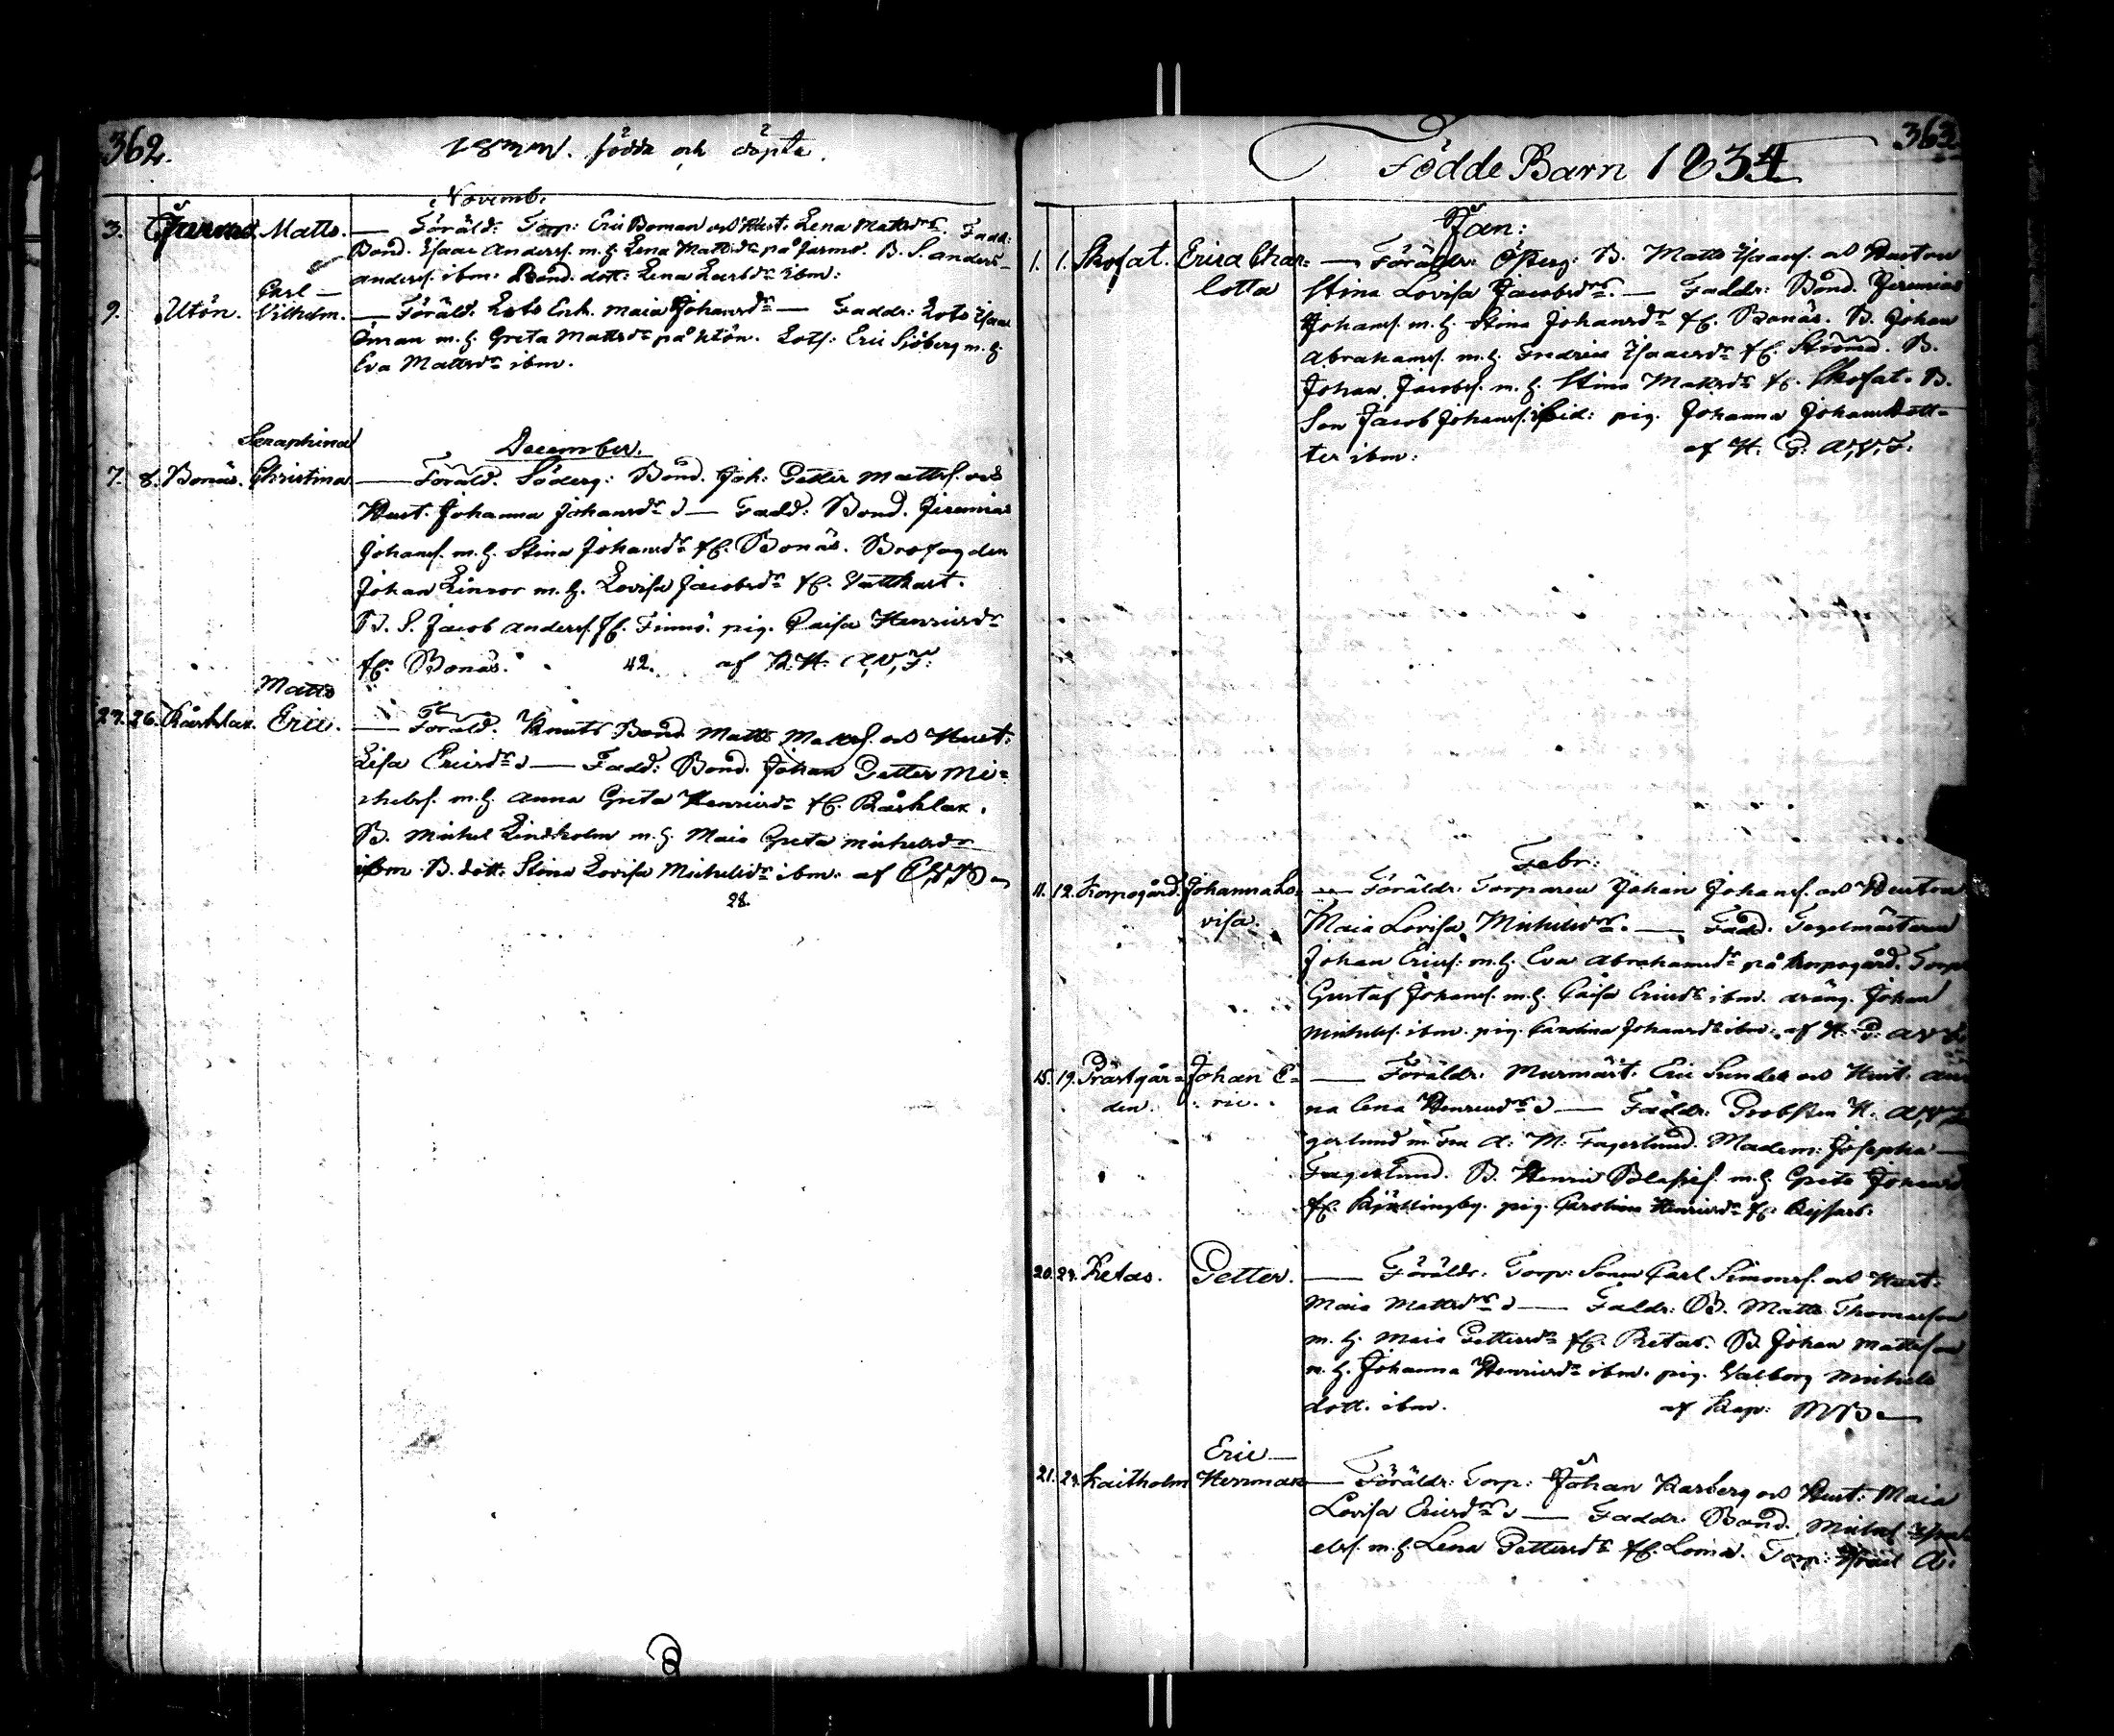 362.
födda och döpta.
Novemb.
3. Jurmo. Matts. — Föräld: Torp: Eric Boman och Hust. Lena Mattsdr. Fadd:
Bond. Isaac Anderss. m. h. Lena Mattsdr på Jurmo. B. S. Anders
Anderss. ibm. Bond. dott: Lena Larsdr ibm:
Carl —
9. Utön. Vilhelm. — Föräld. Lots Enk. Maia Johansdr — Faddr: Lots Isaac
Öman m. h. Greta Mattsdr på Utön. Lots: Eric Sjöberg m. h.
Eva Mattsdr ibm.
Seraphina
December.
7. 8. Bonäs. Christina — Föräld. Söderg: Bond. Joh: Petter Mattss. och
Hust. Johanna Johansdr — Fadd: Bond. Jeremias
Johans. m. h. Stina Johansdr fr. Bonäs. Brofogden
Johan m. h. Lovisa Jacobsdr fr. Vattkast.
B. S. Jacob Anderss. fr. Finnö. pig. Caisa Henricsdr
fr. Bonäs. 42. af
Matts
26. Kårklax. Eric. — Föräld. Knuts Bond Matts Mattss. och Hust:
Lisa Ericsdr — Fadd: Bond. Johan Petter Mi=
chelss. m. h. Anna Greta Henricsdr fr. Kårklax.
B. Michel Lindholm m. h. Maia Greta Michelsdr
ibm. B. dott: Stina Lovisa Michelsdr ibm. af
28.
363
Födde Barn 1834
Jan:
1. 1. Skofat. Erica Char= — Föräldr: Österg: B. Matts Isaacs. och Hustru
lotta Stina Lovisa Jacobsdr. — Faddr: Bond. Jeremias
Johans. m. h. Stina Johansdr fr. Bonäs. B. Johan
Abrahamss. m. h. Fredrica Isaacsdr fr. Strömä. B.
Johan Jacobs. m. h. Stina Mattsdr fr. Skofat. B.
Son Jacob Johanss. ibid: pig. Johanna Johansdott=
ter ibm: af H. P. A. V. F.
Febr:
11. 12. Korpogård. Johanna Lo= — Föräldr: Torparen Johan Johans. och Hustru
visa. Maia Lovisa Michelsdr. — Fadd. Tegelmästaren
Johan Erics: m. h. Eva Abrahamsdr på Korpogård. Torp
Gustaf Johans. m. h. Caisa Ericsdr ibm. dräng. Johan
Michelss. ibm. pig. Carolina Johansdr ibm. af H. P. A V F
15. 19. Prästgår= Johan E= — Föräldr: Murmäst. Eric Sundell och Hust. An
den. ric. na Lena Henricsdr — Faddr: Probsten H. A. V. F
gerlund m. Fru A: M: Fagerlund. Madem: Josepha —
Fagerlund. B. Henric m. h. Greta Johansd
fr. Kjettingby. pig. Carolina Henricsdr fr.
20. 24. Retas. Petter. — Föräldr. Torp: Sonen Carl Simonss. och Hust:
Maia Mattsdr — Faddr: B. Matts Thomasson
m. h. Maia Pettersdr fr. Retas. B. Johan Mattsson
m. h. Johanna Henricsdr ibm. pig. Valborg Michels
dott. ibm. af Kap: MB —
Eric —
21. 24. Kaitholm Herrman — Föräldr: Torp: Johan Karberg och Hust: Maia
Lovisa Ericsdr — Faddr. Bond. Michel
elss. m. h. Lena Pettersdr fr. Lomä. Torp: A: